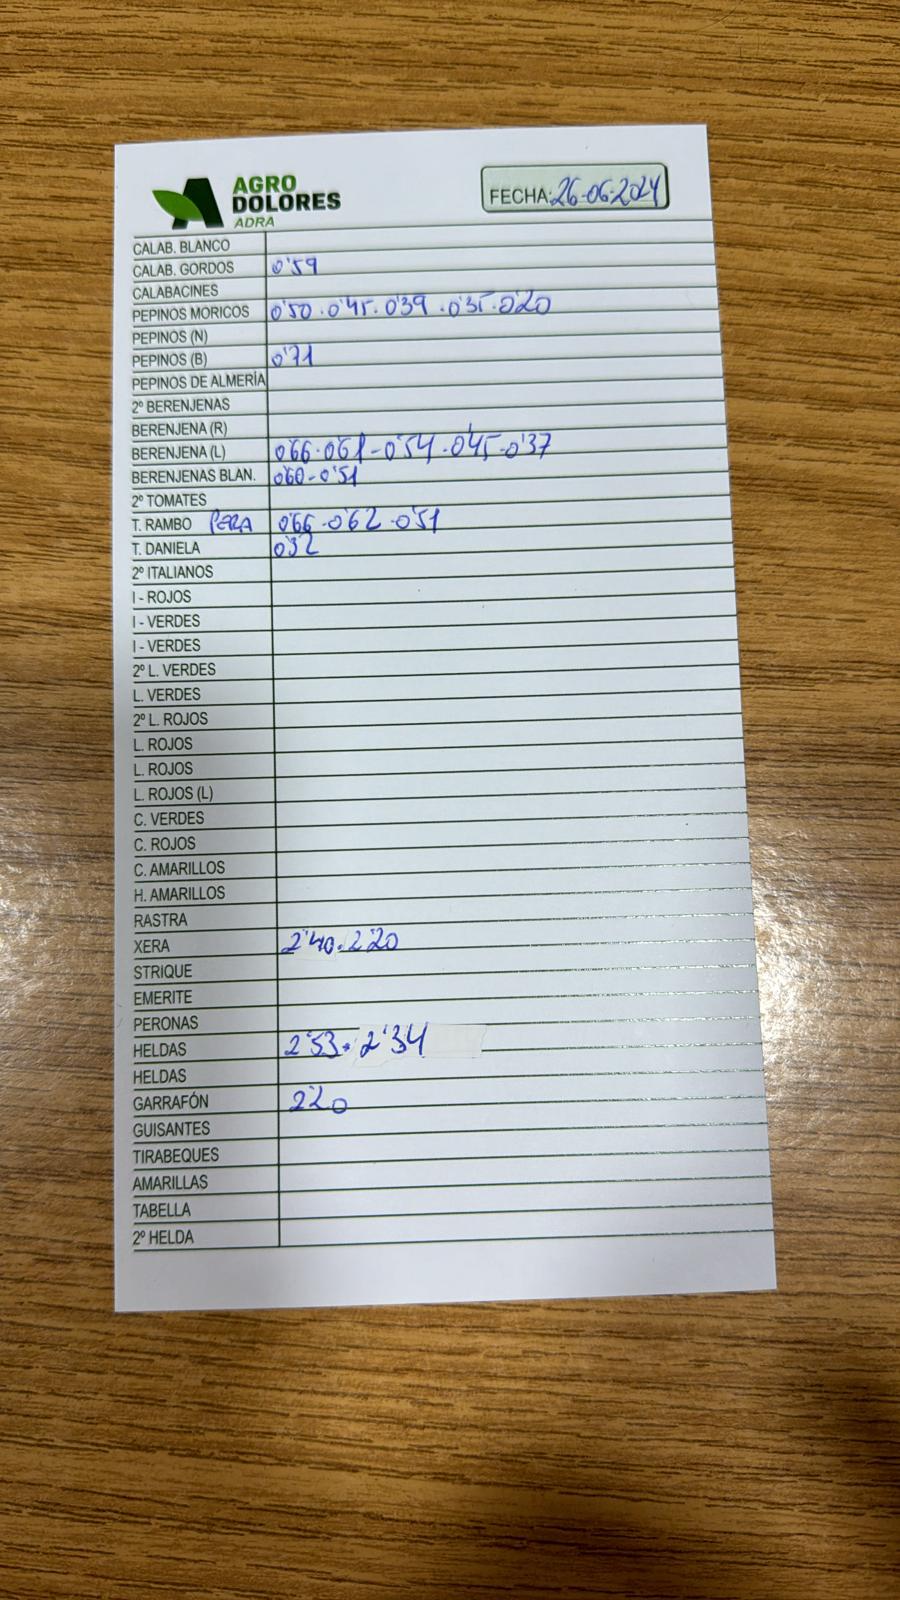 AGRO
DOLORES
ADRA
FECHA: 26-06-2024
CALAB. BLANCO
CALAB. GORDOS 0'59
CALABACINES
PEPINOS MORICOS 0'50 . 0'45 . 0'39 . 0'35 . 0'20
PEPINOS (N)
PEPINOS (B) 0'71
PEPINOS DE ALMERÍA
2º BERENJENAS
BERENJENA (R)
BERENJENA (L) 0'66 . 0'61 - 0'54 . 0'45 - 0'37
BERENJENAS BLAN. 0'60 - 0'51
2º TOMATES
T. RAMBO PERA 0'66 - 0'62 - 0'51
T. DANIELA 0'32
2º ITALIANOS
I - ROJOS
I - VERDES
I - VERDES
2º L. VERDES
L. VERDES
2º L. ROJOS
L. ROJOS
L. ROJOS
L. ROJOS (L)
C. VERDES
C. ROJOS
C. AMARILLOS
H. AMARILLOS
RASTRA
XERA 2'40 . 2'20
STRIQUE
EMERITE
PERONAS
HELDAS 2'53 . 2'34
HELDAS
GARRAFÓN 2'20
GUISANTES
TIRABEQUES
AMARILLAS
TABELLA
2º HELDA